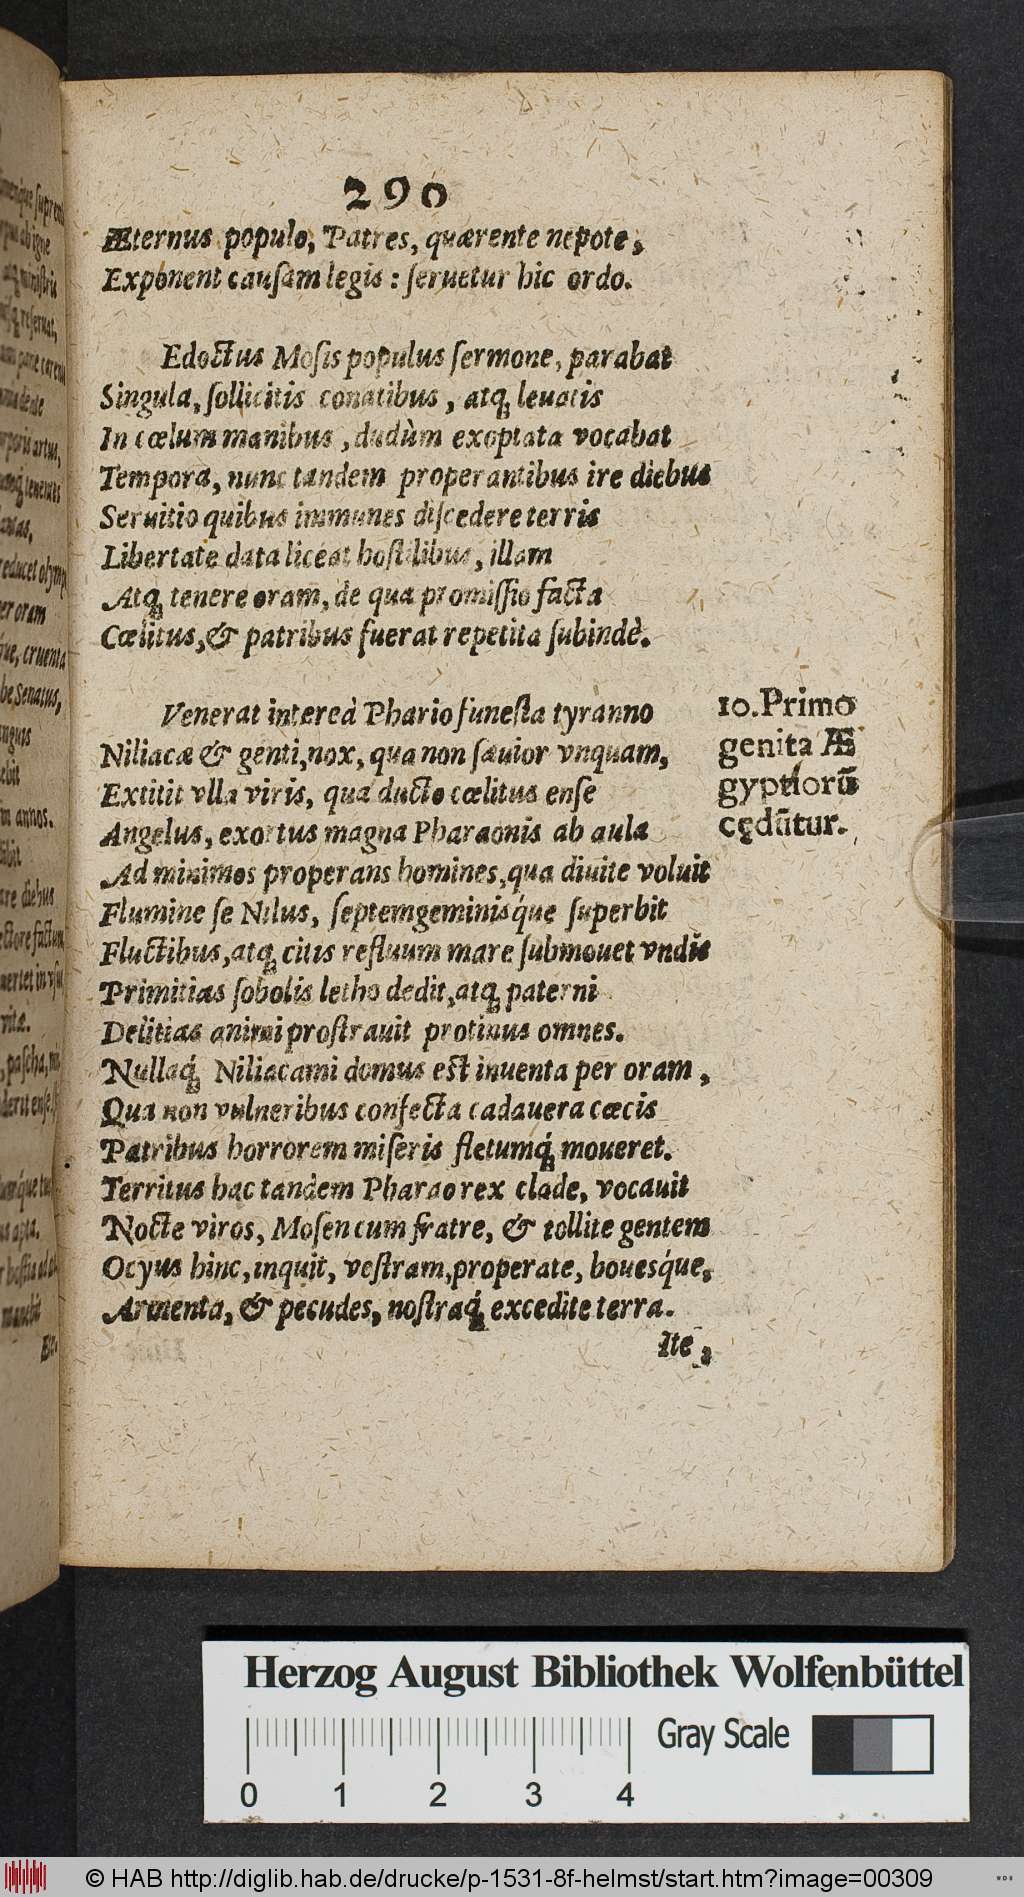 290
Æternus populo, Patres, quærente nepote,
Exponent cauſam legis : ſeruetur hic ordo.
Edoctus Moſis populus ſermone, parabat
Singula, ſollicitis conatibus, atq; leuatis
In cœlum manibus, dudùm exoptata vocabat
Tempora, nunc tandem properantibus ire diebus
Seruitio quibus immunes diſcedere terris
Libertate data liceat hoſtilibus, illam
Atq; tenere oram, de qua promiſſio facta
Cœlitus, & patribus fuerat repetita ſubindè.
Venerat intereà Phario funeſta tyranno
Niliacæ & genti, nox, qua non ſæuior vnquam,
Extitit vlla viris, qua ducto cœlitus enſe
Angelus, exortus magna Pharaonis ab aula
Ad minimos properans homines, qua diuite voluit
Flumine ſe Nilus, ſeptemgeminisq́ue ſuperbit
Fluctibus, atq; citis refluum mare ſubmouet vndis
Primitias ſobolis letho dedit, atq; paterni
Delitias animi proſtrauit protinus omnes.
Nullaq́; Niliacami domus eſt inuenta per oram,
Qua non vulneribus confecta cadauera cæcis
Patribus horrorem miſeris fletumq́; moueret.
Territus hac tandem Pharao rex clade, vocauit
Nocte viros, Moſen cum fratre, & tollite gentem
Ocyus hinc, inquit, veſtram, properate, bouesq́ue,
Armenta, & pecudes, noſtraq́; excedite terra.
Ite,
10. Primo
genita Æ
gyptiorū
cędūtur.
Herzog August Bibliothek Wolfenbüttel
Gray Scale
0 1 2 3 4
© HAB http://diglib.hab.de/drucke/p-1531-8f-helmst/start.htm?image=00309